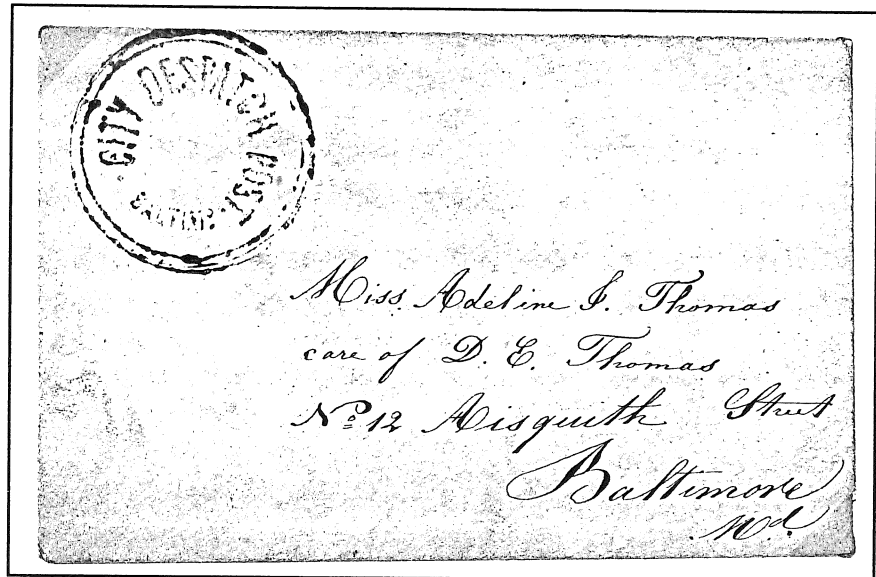 CITY DESPATCH POST
BALTIMORE
Miss. Adeline J. Thomas
care of D. E. Thomas
Nº 12 Aisquith Street
Baltimore
Md.